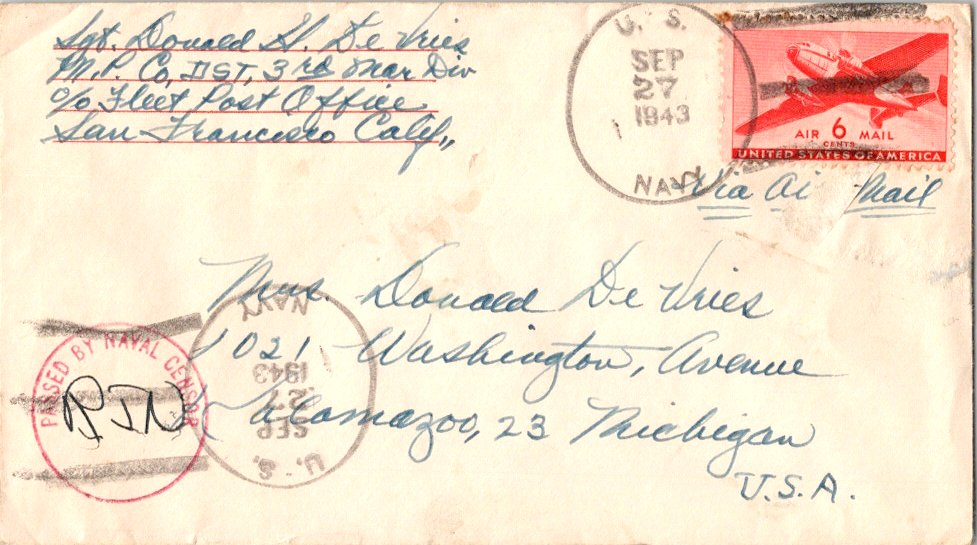 Sgt. Donald H. De Vries
M.P. Co, DST, 3rd Mar Div
c/o Fleet Post Office
San Francisco Calif,,
U. S.
SEP
27
1943
NAVY
AIR 6 MAIL
CENTS
UNITED STATES OF AMERICA
Via Air Mail
Mrs. Donald De Vries
1021 Washington, Avenue
Kalamazoo, 23 Michigan
U.S.A.
PASSED BY NAVAL CENSOR
PJN
U. S.
SEP
27
1943
NAVY